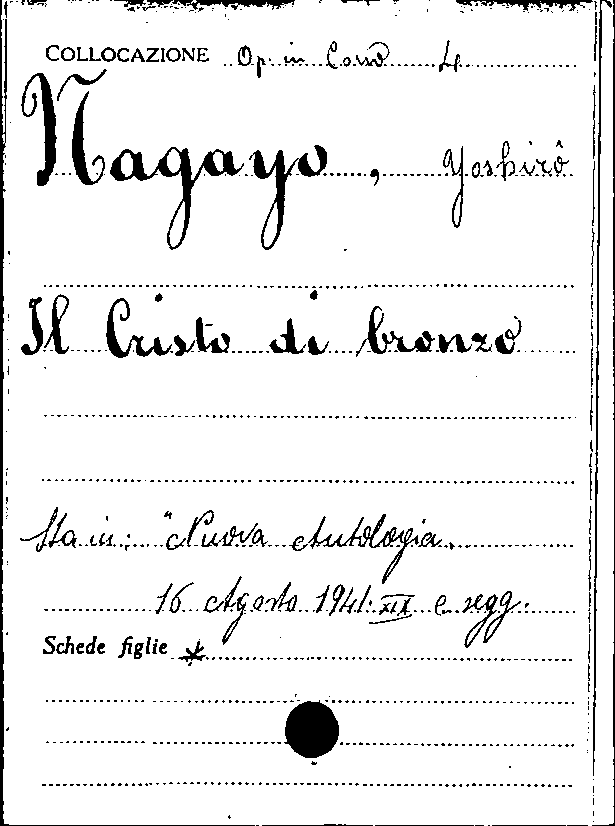 COLLOCAZIONE Op. in Corso 4
Nagayo, Yoshirô
Il Cristo di bronzo
Sta in: "Nuova Antologia.
16 Agosto 1941. XIX e segg.
Schede figlie *